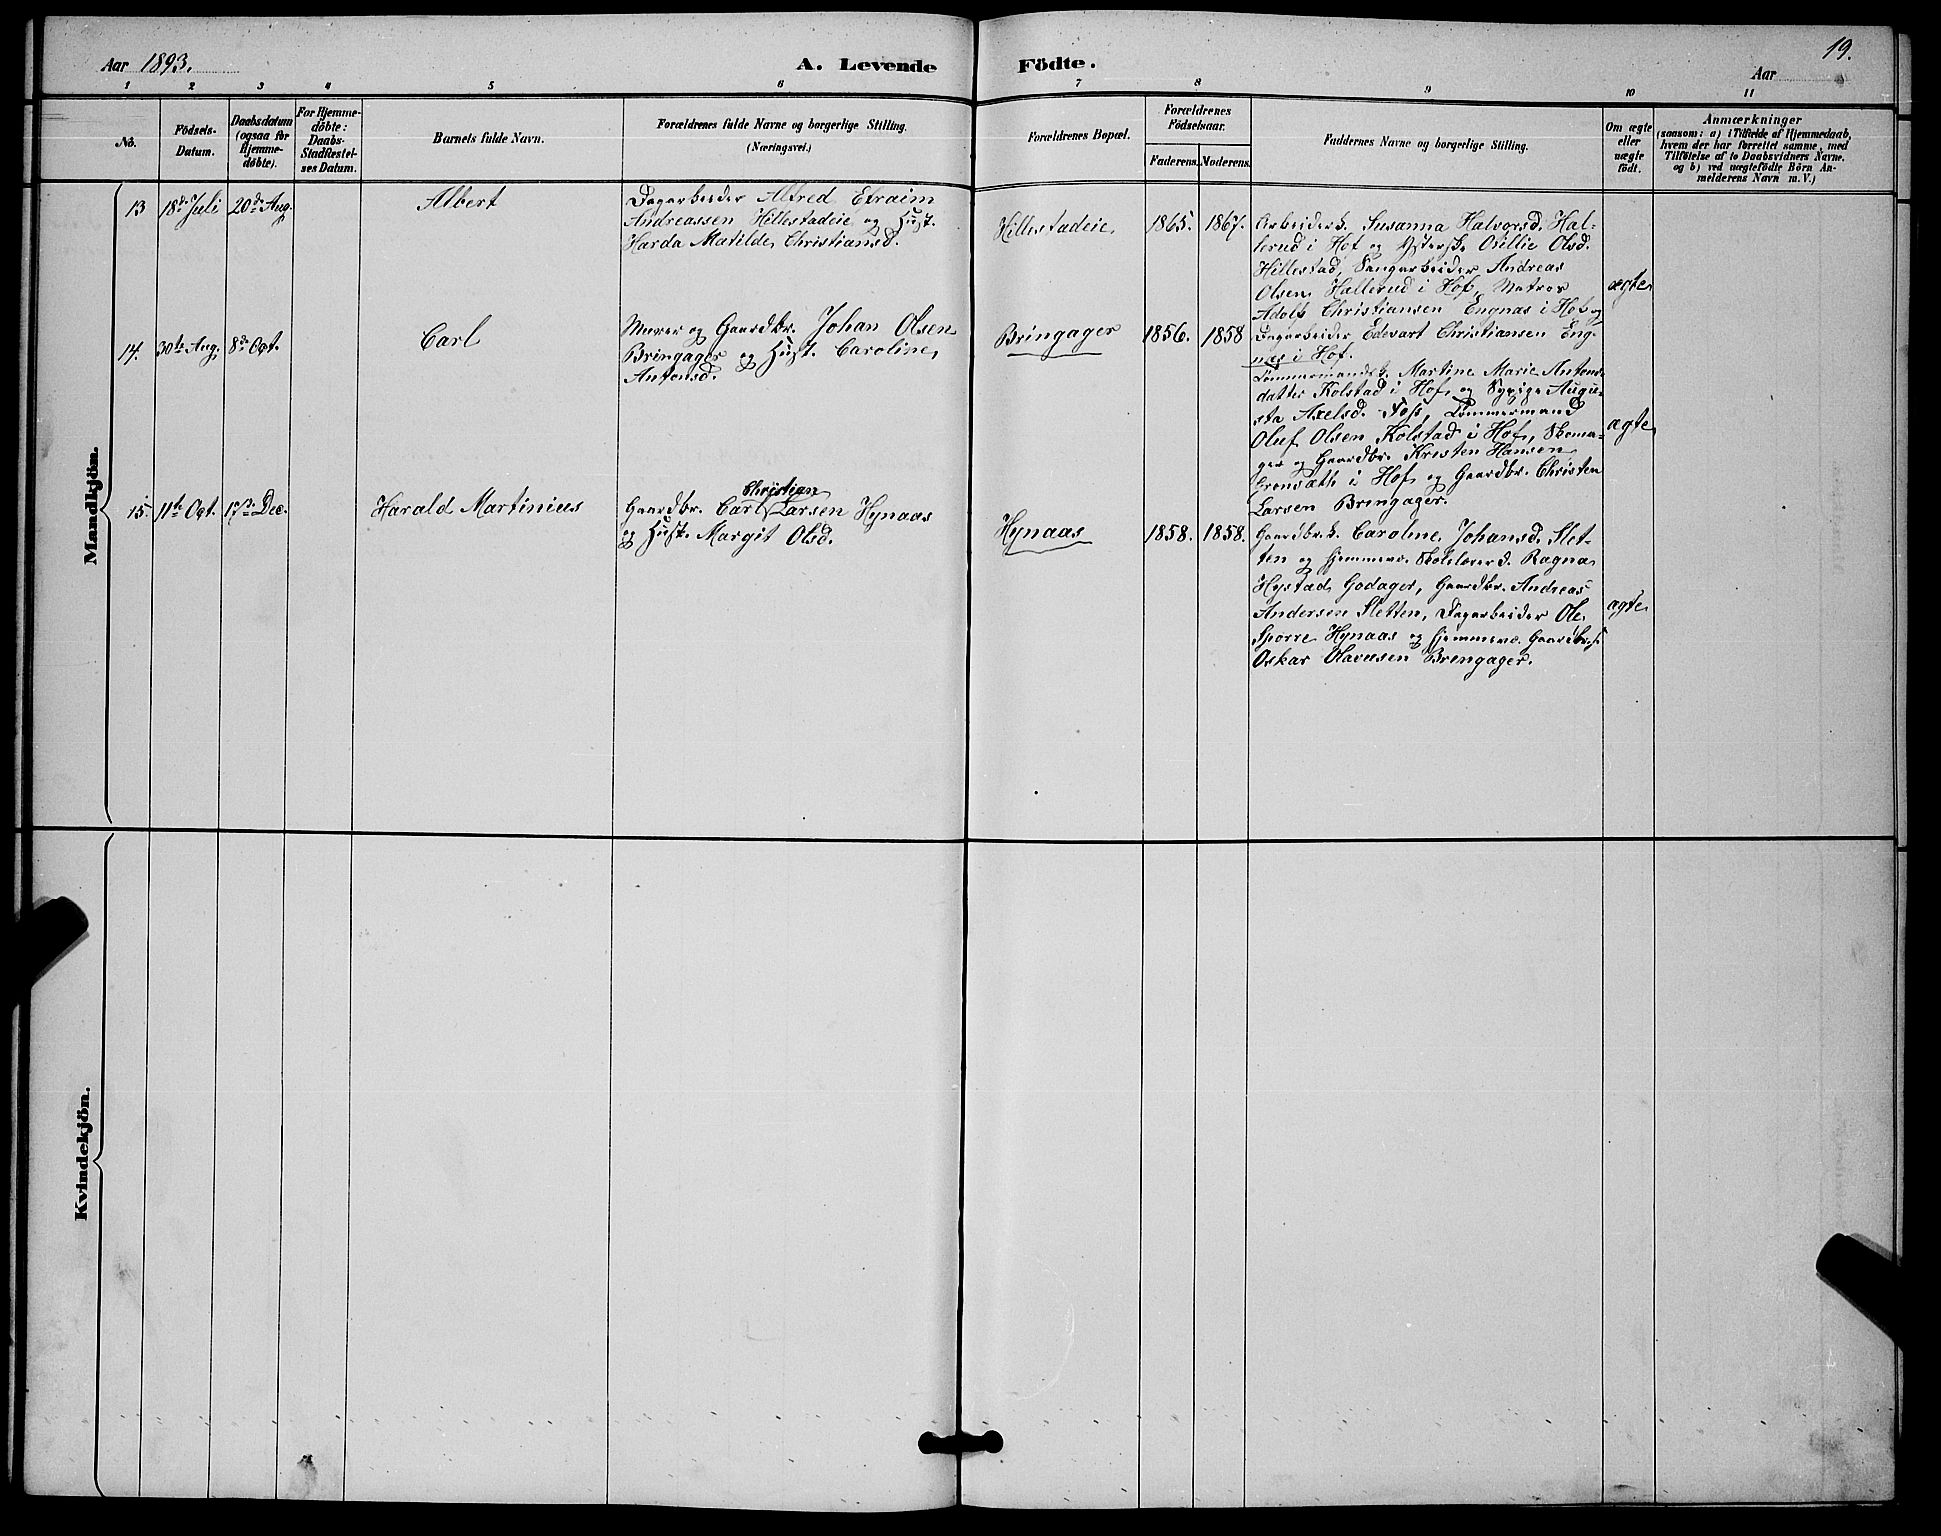 Aar 1893.
A. Levende Födte.
19.
Aar
1 2 3 4 5 6 7 8 9 10 11
No.
Födsels-
Datum.
Daabsdatum
(ogsaa for
Hjemme-
döbte).
For Hjemme-
döbte:
Daabs-
Stadfæstel-
ses Datum.
Barnets fulde Navn.
Forældrenes fulde Navne og borgerlige Stilling.
(Næringsvei.)
Forældrenes Bopæl.
Forældrenes
Födselsaar.
Faderens. Moderens.
Faddernes Navne og borgerlige Stilling.
Om ægte
eller
uægte
født.
Anmærkninger
(saasom: a) i Tilfælde af Hjemmedaab,
hvem der har forrettet samme, med
Tilföielse af to Daabsvidners Navne.
og b) ved uægtefödte Börn An-
melderens Navn m. V.)
Mandkjön.
13 18de Juli 20de Aug. Albert
Dagarbeider Alfred Efraim
Andreassen Hillestadeie og Hust.
Harda Matilde Christiansd.
Hillestadeie 1865. 1867.
Arbeiderk. Susanna Halvorsd. Hal-
lerud i Hof og Olsd.
Hillestad, Andreas
Olsen Hallerud i Hof, Matros
Adolf Christiansen Engnæs i Hof og
Dagarbeider Edevart Christiansen Eng-
næs i Hof.
ægte
14. 30te Aug. 8de Oct. Carl
Murer og Gaardbr. Johan Olsen
Bringager og Hust. Caroline
Antonsd.
Bringager 1856. 1858
Tømmermandsk. Martine Marie Antons-
datter Kolstad i Hof, og Sypige Augu-
sta Axelsd. Foss, Tømmermand
Oluf Olsen Kolstad i Hof, Skoma-
ger og Gaardbr. Kristen Hansen
i Hof og Gaardbr. Christen
Larsen Bringager.
ægte
15. 11te Oct. 17de Dec. Harald Martinius
Christian
Gaardbr. Carl Larsen Hynaas
og Hust. Margit Olsd.
Hynaas 1858. 1858.
Gaardbr.k. Caroline Johansd. Slet-
ten og hjemmev. Skolelærerd. Ragna
Hystad Godager, Gaardbr. Andreas
Andersen Sletten, Dagarbeider Ole
Sporre Hynaas og hjemmevæ. Gaardbr.s.
Oskar Olavesen Bringager.
ægte
Kvindekjön.